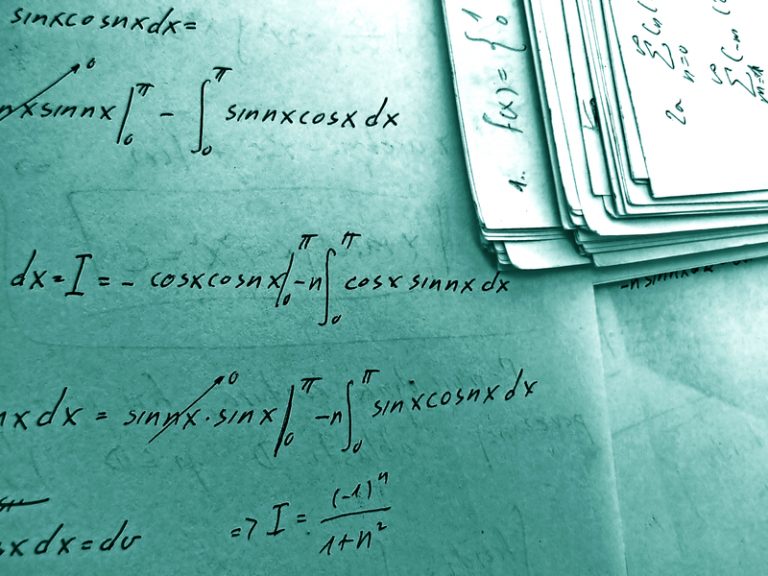 sinxcosnxdx=
nxsinnx|₀^π - ∫₀^π sinnxcosxdx
dx=I=-cosxcosnx|₀^π -n∫₀^π cosxsinnxdx
nxdx=sinnx·sinx|₀^π -n∫₀^π sinxcosnxdx
xdx=dv
=> I=(-1)^n/(1+n²)
1. f(x)={1 0
∑ n=0
2a ∑